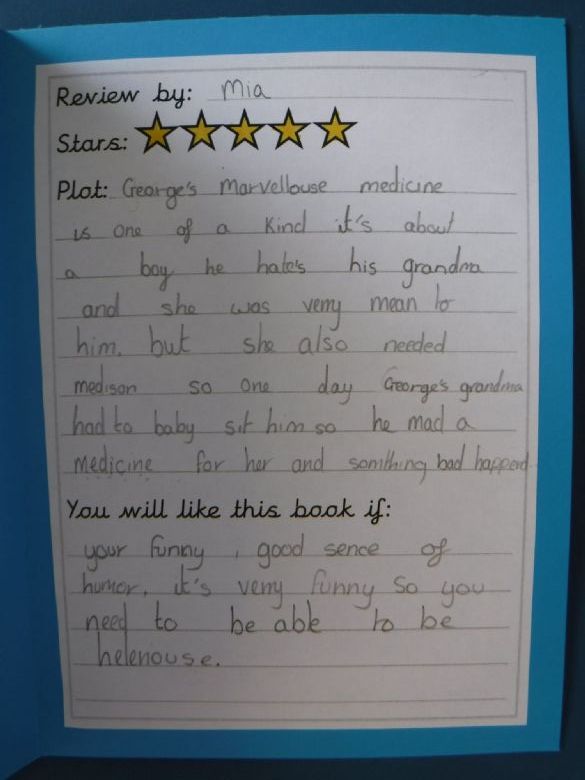 Review by: Mia
Stars:
Plot: George's Marvellouse medicine
is one of a kind it's about
a boy he hate's his grandma
and she was verry mean to
him. but she also needed
medison so one day George's grandma
had to baby sit him so he mad a
medicine for her and somthing bad happend
You will like this book if:
your funny, good sence of
humor, it's very funny so you
need to be able to be
helenouse.